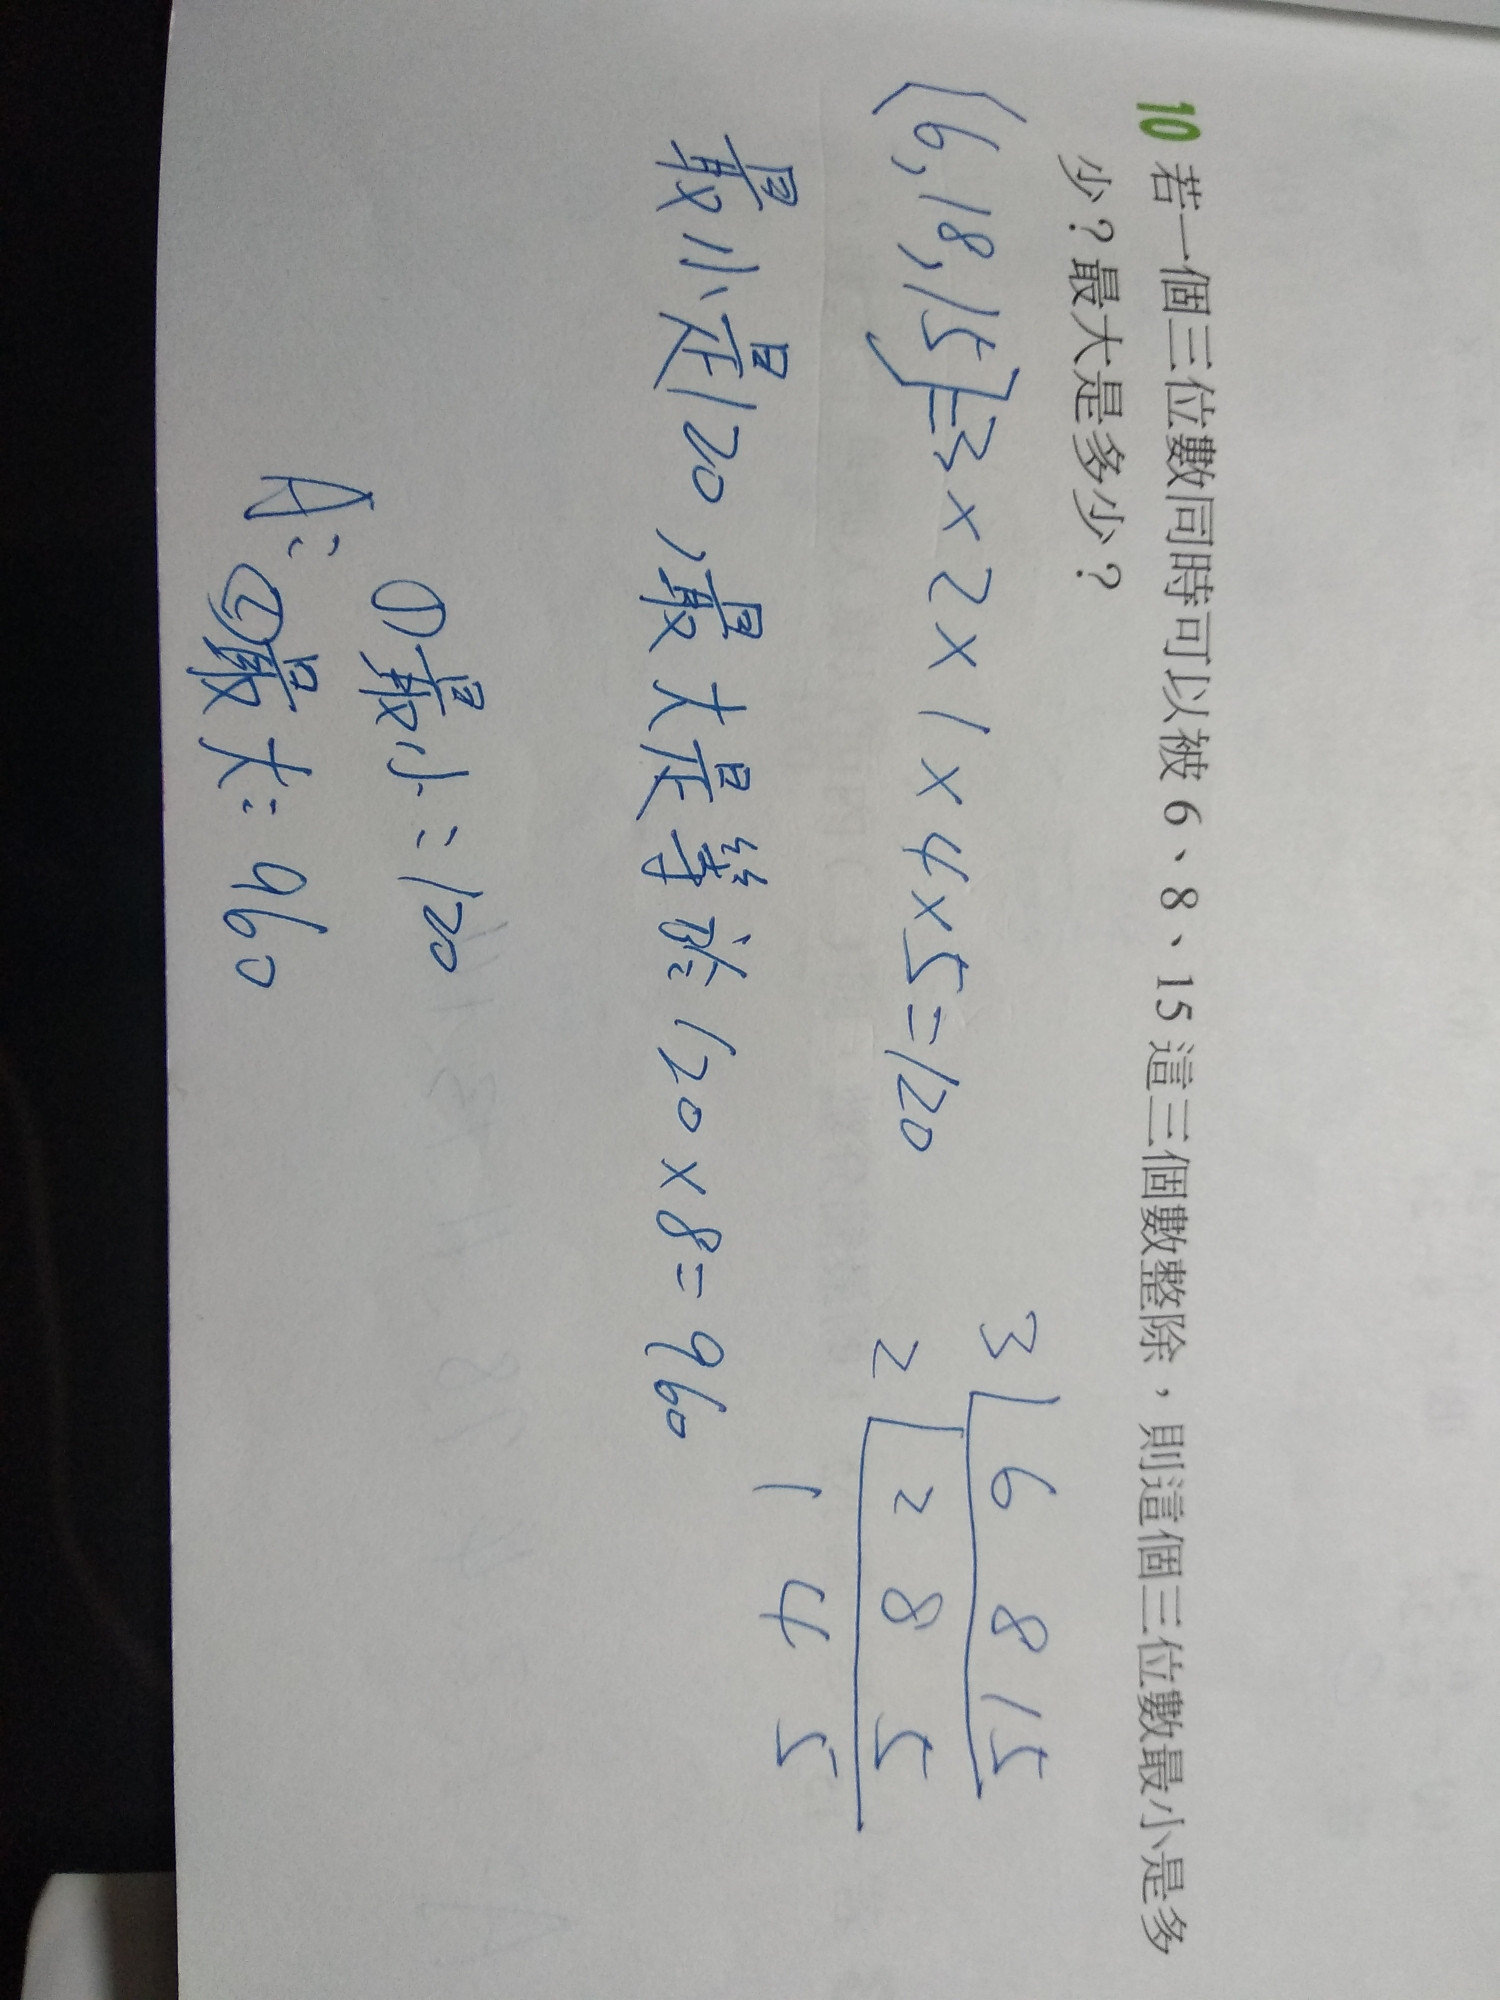 10 若一個三位數同時可以被6、8、15這三個數整除，則這個三位數最小是多
少？最大是多少？
[6,18,15]=3×2×1×4×5=120
3 6 8 15
2 2 8 5
1 4 5
最小是120,最大是等於120×8=960
①最小:120
A:②最大:960